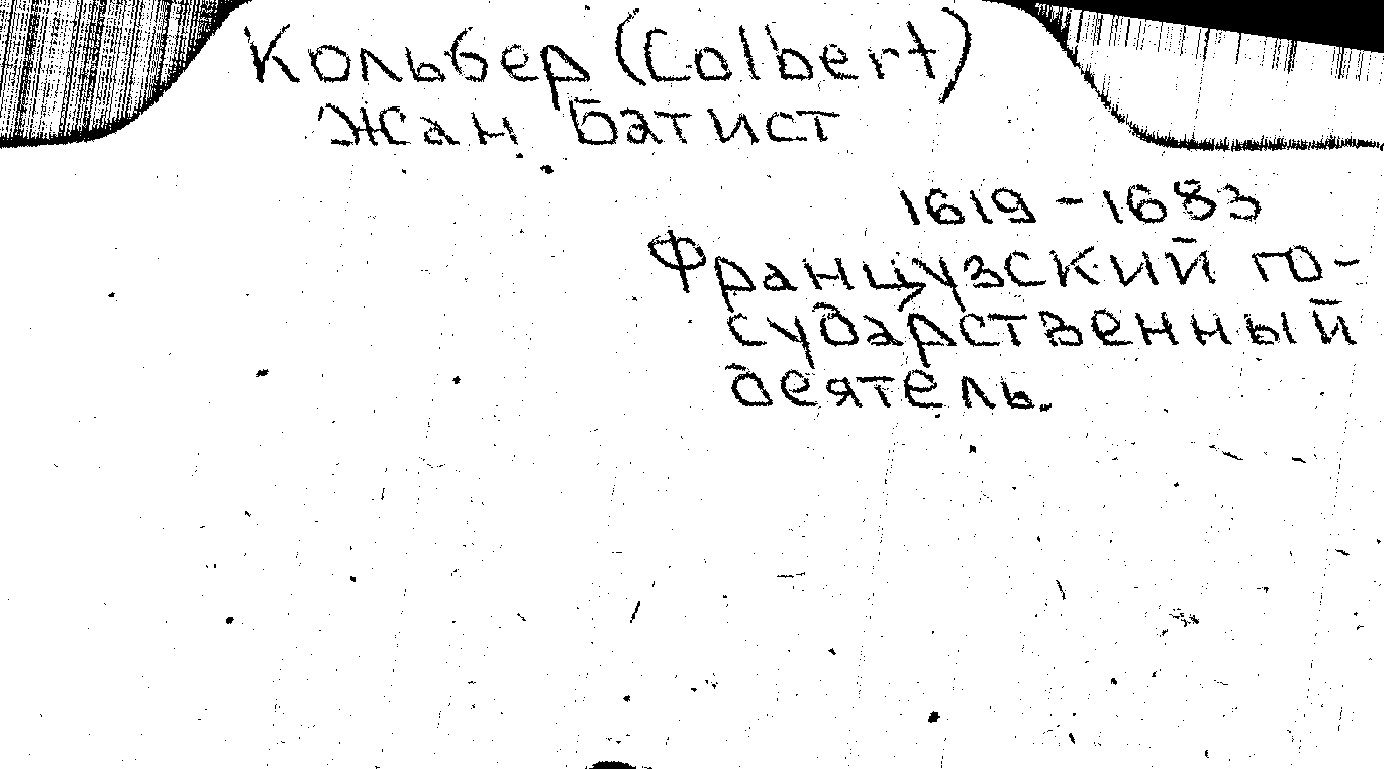 Кольбер (Colbert)
Жан Батист
1619 - 1683
Французский го-
сударственный
деятель.